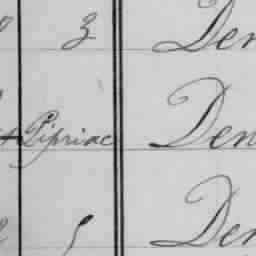 3 Den
Pipriac Den
5 Den